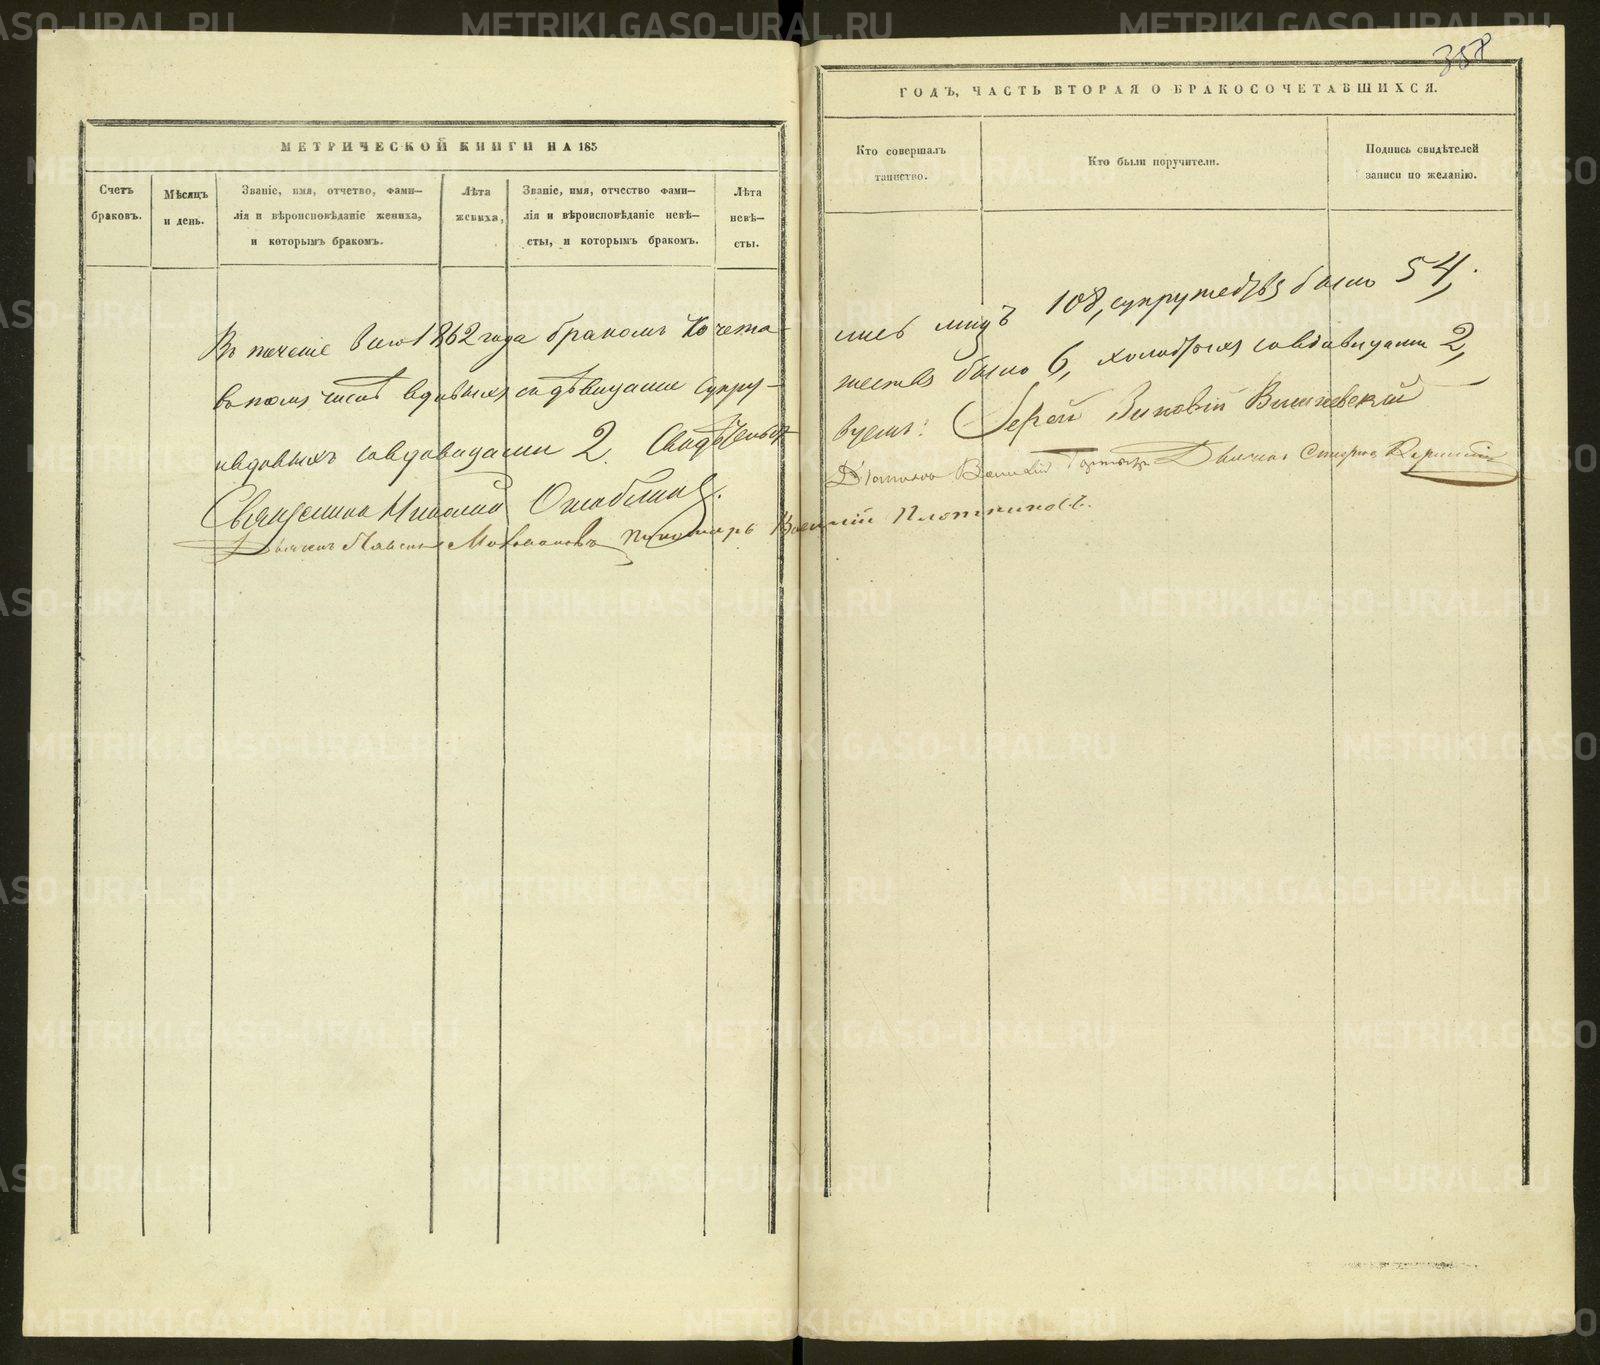 358
МЕТРИЧЕСКОЙ КНИГИ НА 185
ГОДЪ, ЧАСТЬ ВТОРАЯ О БРАКОСОЧЕТАВШИХСЯ.
Счетъ
браковъ.
Мѣсяцъ
и день.
Званіе, имя, отчетво, фами-
лія и вѣроисповѣданіе жениха,
и которымъ бракомъ.
Лѣта
жениха,
Званіе, имя, отчество фами-
лія и вѣроисповѣданіе невѣ-
сты, и которымъ бракомъ.
Лѣта
невѣ-
сты.
Кто совершалъ
таинство.
Кто были поручители.
Подпись свидѣтелей
записи по желанію.
Въ теченіе сего 1862 года бракомъ сочета-
лись лицъ 108, супружествъ было 54,
въ томъ числѣ вдовыхъ съ дѣвицами супру-
жествъ было 6, холостыхъ со вдовицами 2,
и вдовыхъ со вдовицами 2. Свидѣтельст-
вуемъ: Іерей Зиновій Вишневскій
Священникъ Николай Оглоблинъ.
Діаконъ Василій Дьячекъ
Дьячекъ Пономарь Василій Плотниковъ.
METRIKI.GASO-URAL.RU